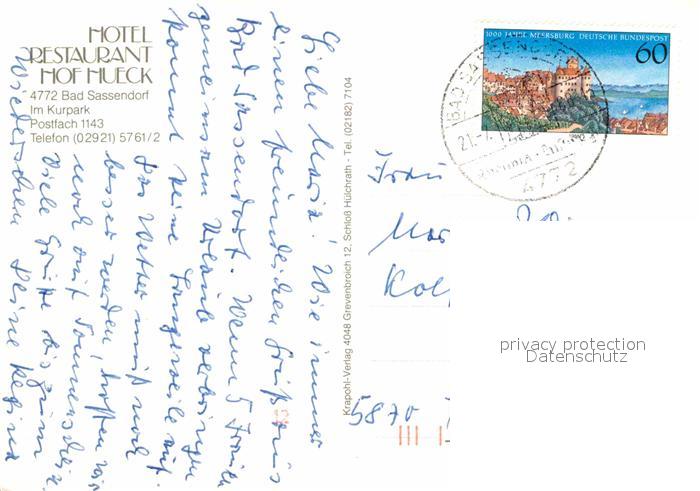 HOTEL
RESTAURANT
HOF HUECK
4772 Bad Sassendorf
Im Kurpark
Postfach 1143
Telefon (02921) 5761/2
Liebe Maria! Wie immer
einen freundlichen Gruß aus
Bad Sassendorf. Wenn 5 Frauen
gemeinsam Urlaub verbringen
kommt keine Langeweile auf.
Das Wetter muß noch
besser werden, hoffen wir
noch auf Sonnenschein.
Viele Grüße bis zum
Wiedersehen Deine Regina
Krapohl-Verlag 4048 Grevenbroich 12, Schloß Hülchrath - Tel. (02182) 7104
1000 JAHRE MEERSBURG DEUTSCHE BUNDESPOST
60
BAD SASSENDORF
21.-7.
4772
Frau
Mar
Kol
5870
privacy protection
Datenschutz